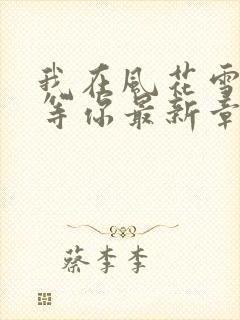 我在風花雪
等你最新章
蔡李李